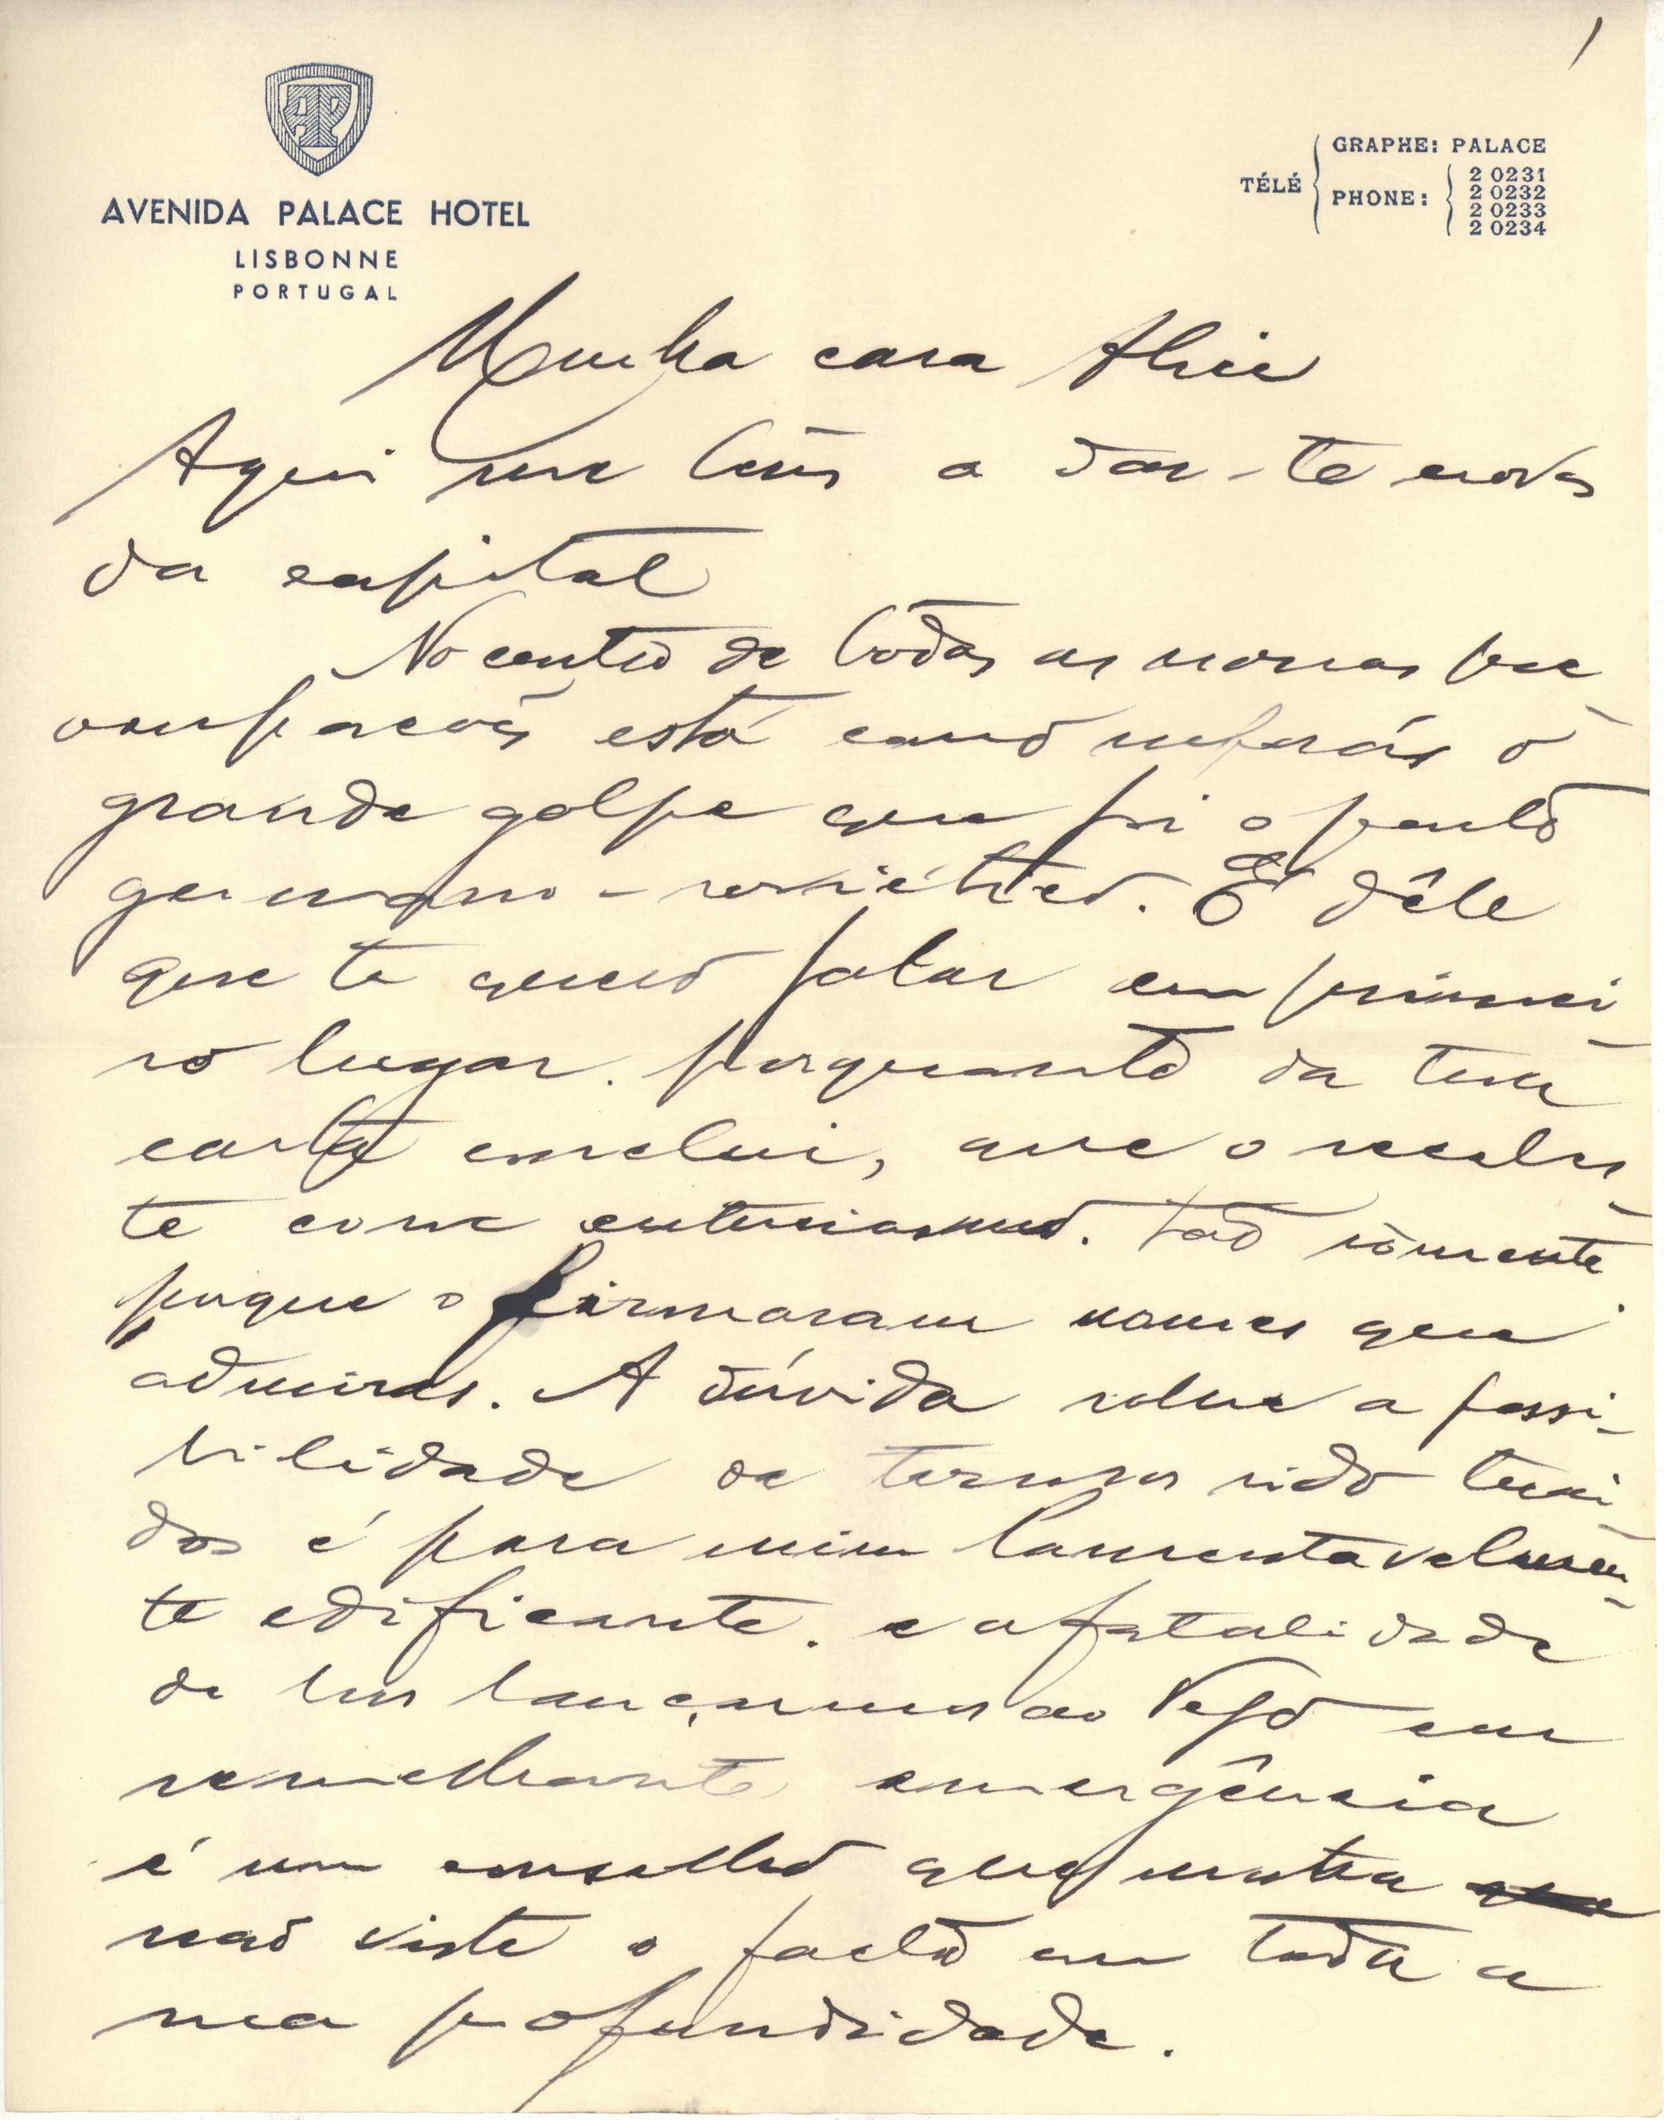 1
AP
AVENIDA PALACE HOTEL
LISBONNE
PORTUGAL
TÉLÉ
GRAPHE: PALACE
PHONE:
2 0231
2 0232
2 0233
2 0234
Minha cara Alice
Aqui me tens a dar-te novas
da capital
No centro de todas as nossas pre
ocupacões está como o
grande golpe que foi o pacto
germano-soviético. É dêle
que te quero falar em primei
ro lugar. porquanto da tua
carta conclui, que o recebes
te com entusiasmo. Tão sòmente
porque o firmaram nomes que
admiras. A dúvida sobre a possi-
bilidade de termos sido trai
dos é para mim lamentavelmen-
te edificante. e a fatalidade
de nos lançarmos ao Tejo em
semelhante emergência
é um conselho que mostra
não viste o facto em toda a
sua profundidade.